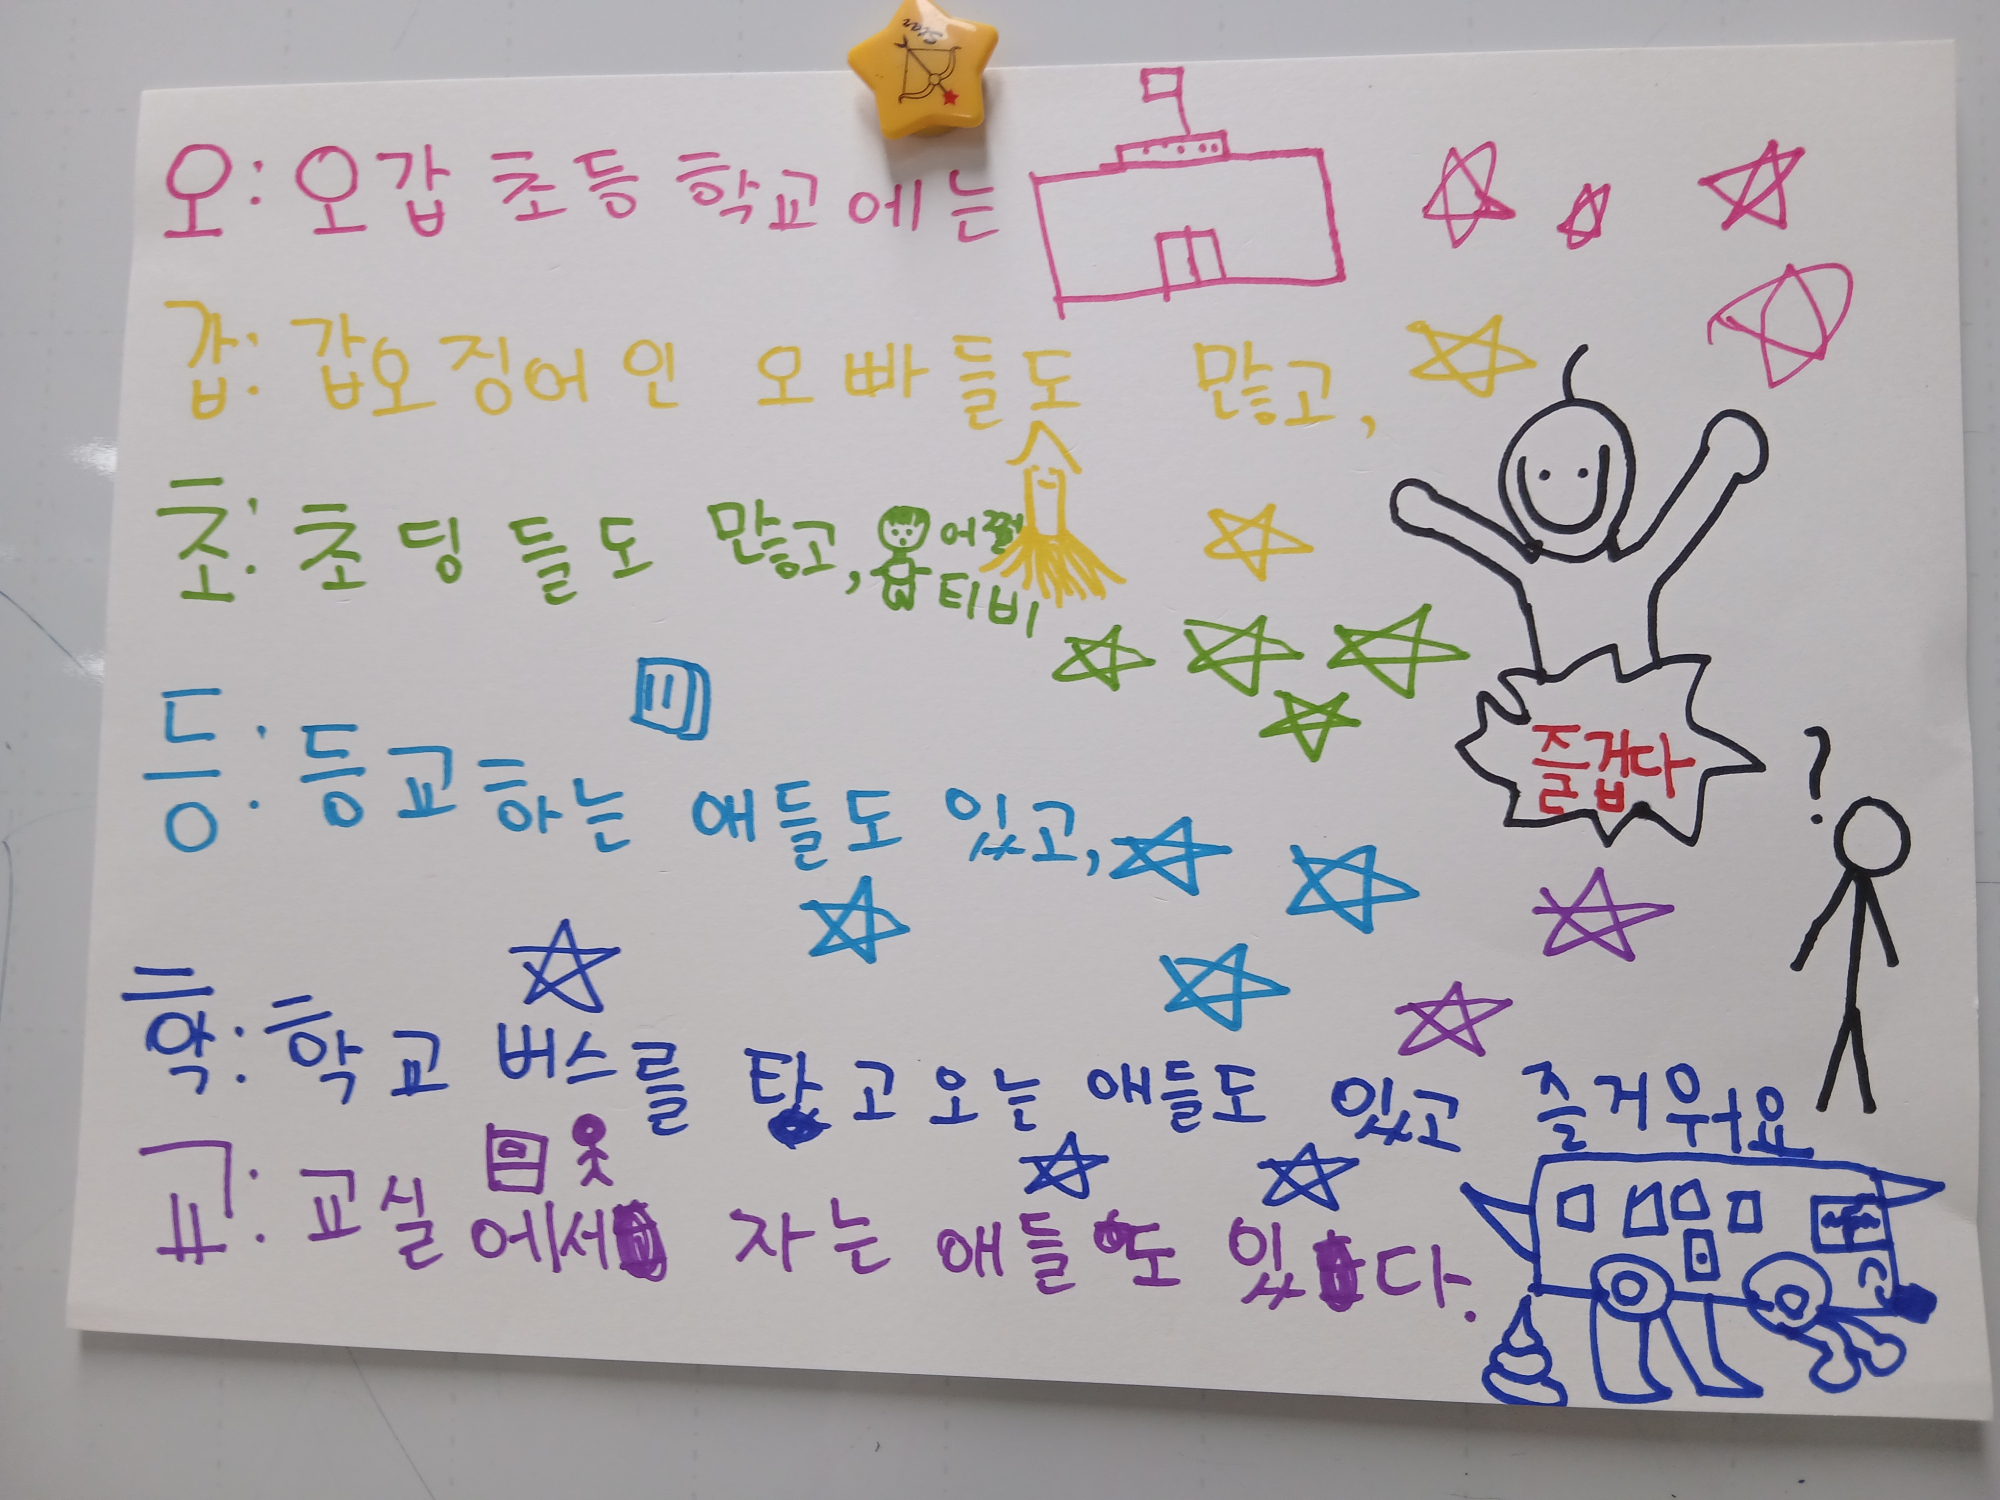 오: 오갑 초등 학교에는
갑: 갑오징어인 오빠들도 많고,
초: 초딩들도 많고,
어쩔
티비
등: 등교하는 애들도 있고,
즐겁다
?
학: 학교 버스를 타고 오는 애들도 있고 즐거워요
교: 교실에서 자는 애들도 있다.
Star